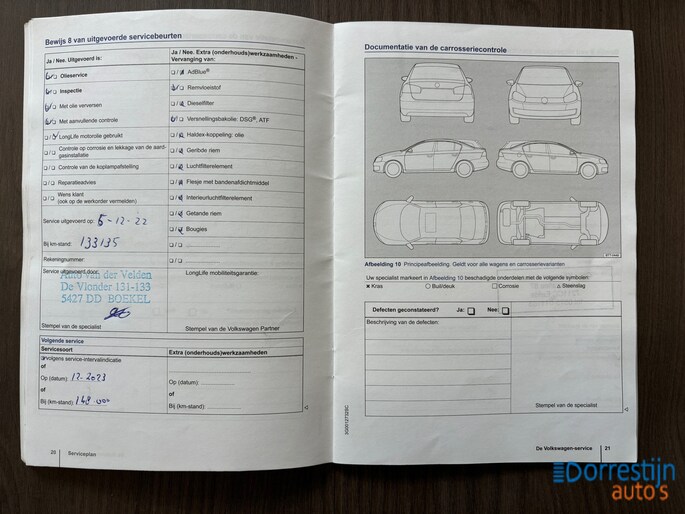 Bewijs 8 van uitgevoerde servicebeurten
Ja / Nee. Uitgevoerd is:
Ja / Nee. Extra (onderhouds)werkzaamheden -
Vervanging van:
Olieservice
Inspectie
Met olie verversen
Met aanvullende controle
LongLife motorolie gebruikt
Controle op corrosie en lekkage van de aard-
gasinstallatie
Controle van de koplampafstelling
Reparatieadvies
Wens klant
(ook op de werkorder vermelden)
AdBlue®
Remvloeistof
Dieselfilter
Versnellingsbakolie: DSG®, ATF
Haldex-koppeling: olie
Geribde riem
Luchtfilterelement
Flesje met bandenafdichtmiddel
Interieurluchtfilterelement
Getande riem
Bougies
Service uitgevoerd op: 5-12-22
Bij km-stand: 133135
Rekeningnummer:
Service uitgevoerd door:
Auto van der Velden
De Vlonder 131-133
5427 DD BOEKEL
LongLife mobiliteitsgarantie:
Stempel van de specialist
Stempel van de Volkswagen Partner
Volgende service
Servicesoort
Extra (onderhouds)werkzaamheden
volgens service-intervalindicatie
of
Op (datum): 12-2023
of
Bij (km-stand): 148.000
Op (datum):
of
Bij (km-stand):
20 Serviceplan
Documentatie van de carrosseriecontrole
Afbeelding 10 Principeafbeelding. Geldt voor alle wagens en carrosserievarianten
Uw specialist markeert in Afbeelding 10 beschadigde onderdelen met de volgende symbolen:
Kras
Buil/deuk
Corrosie
Steenslag
Defecten geconstateerd? Ja: Nee:
Beschrijving van de defecten:
Stempel van de specialist
De Volkswagen-service 21
Dorrestijn
auto's